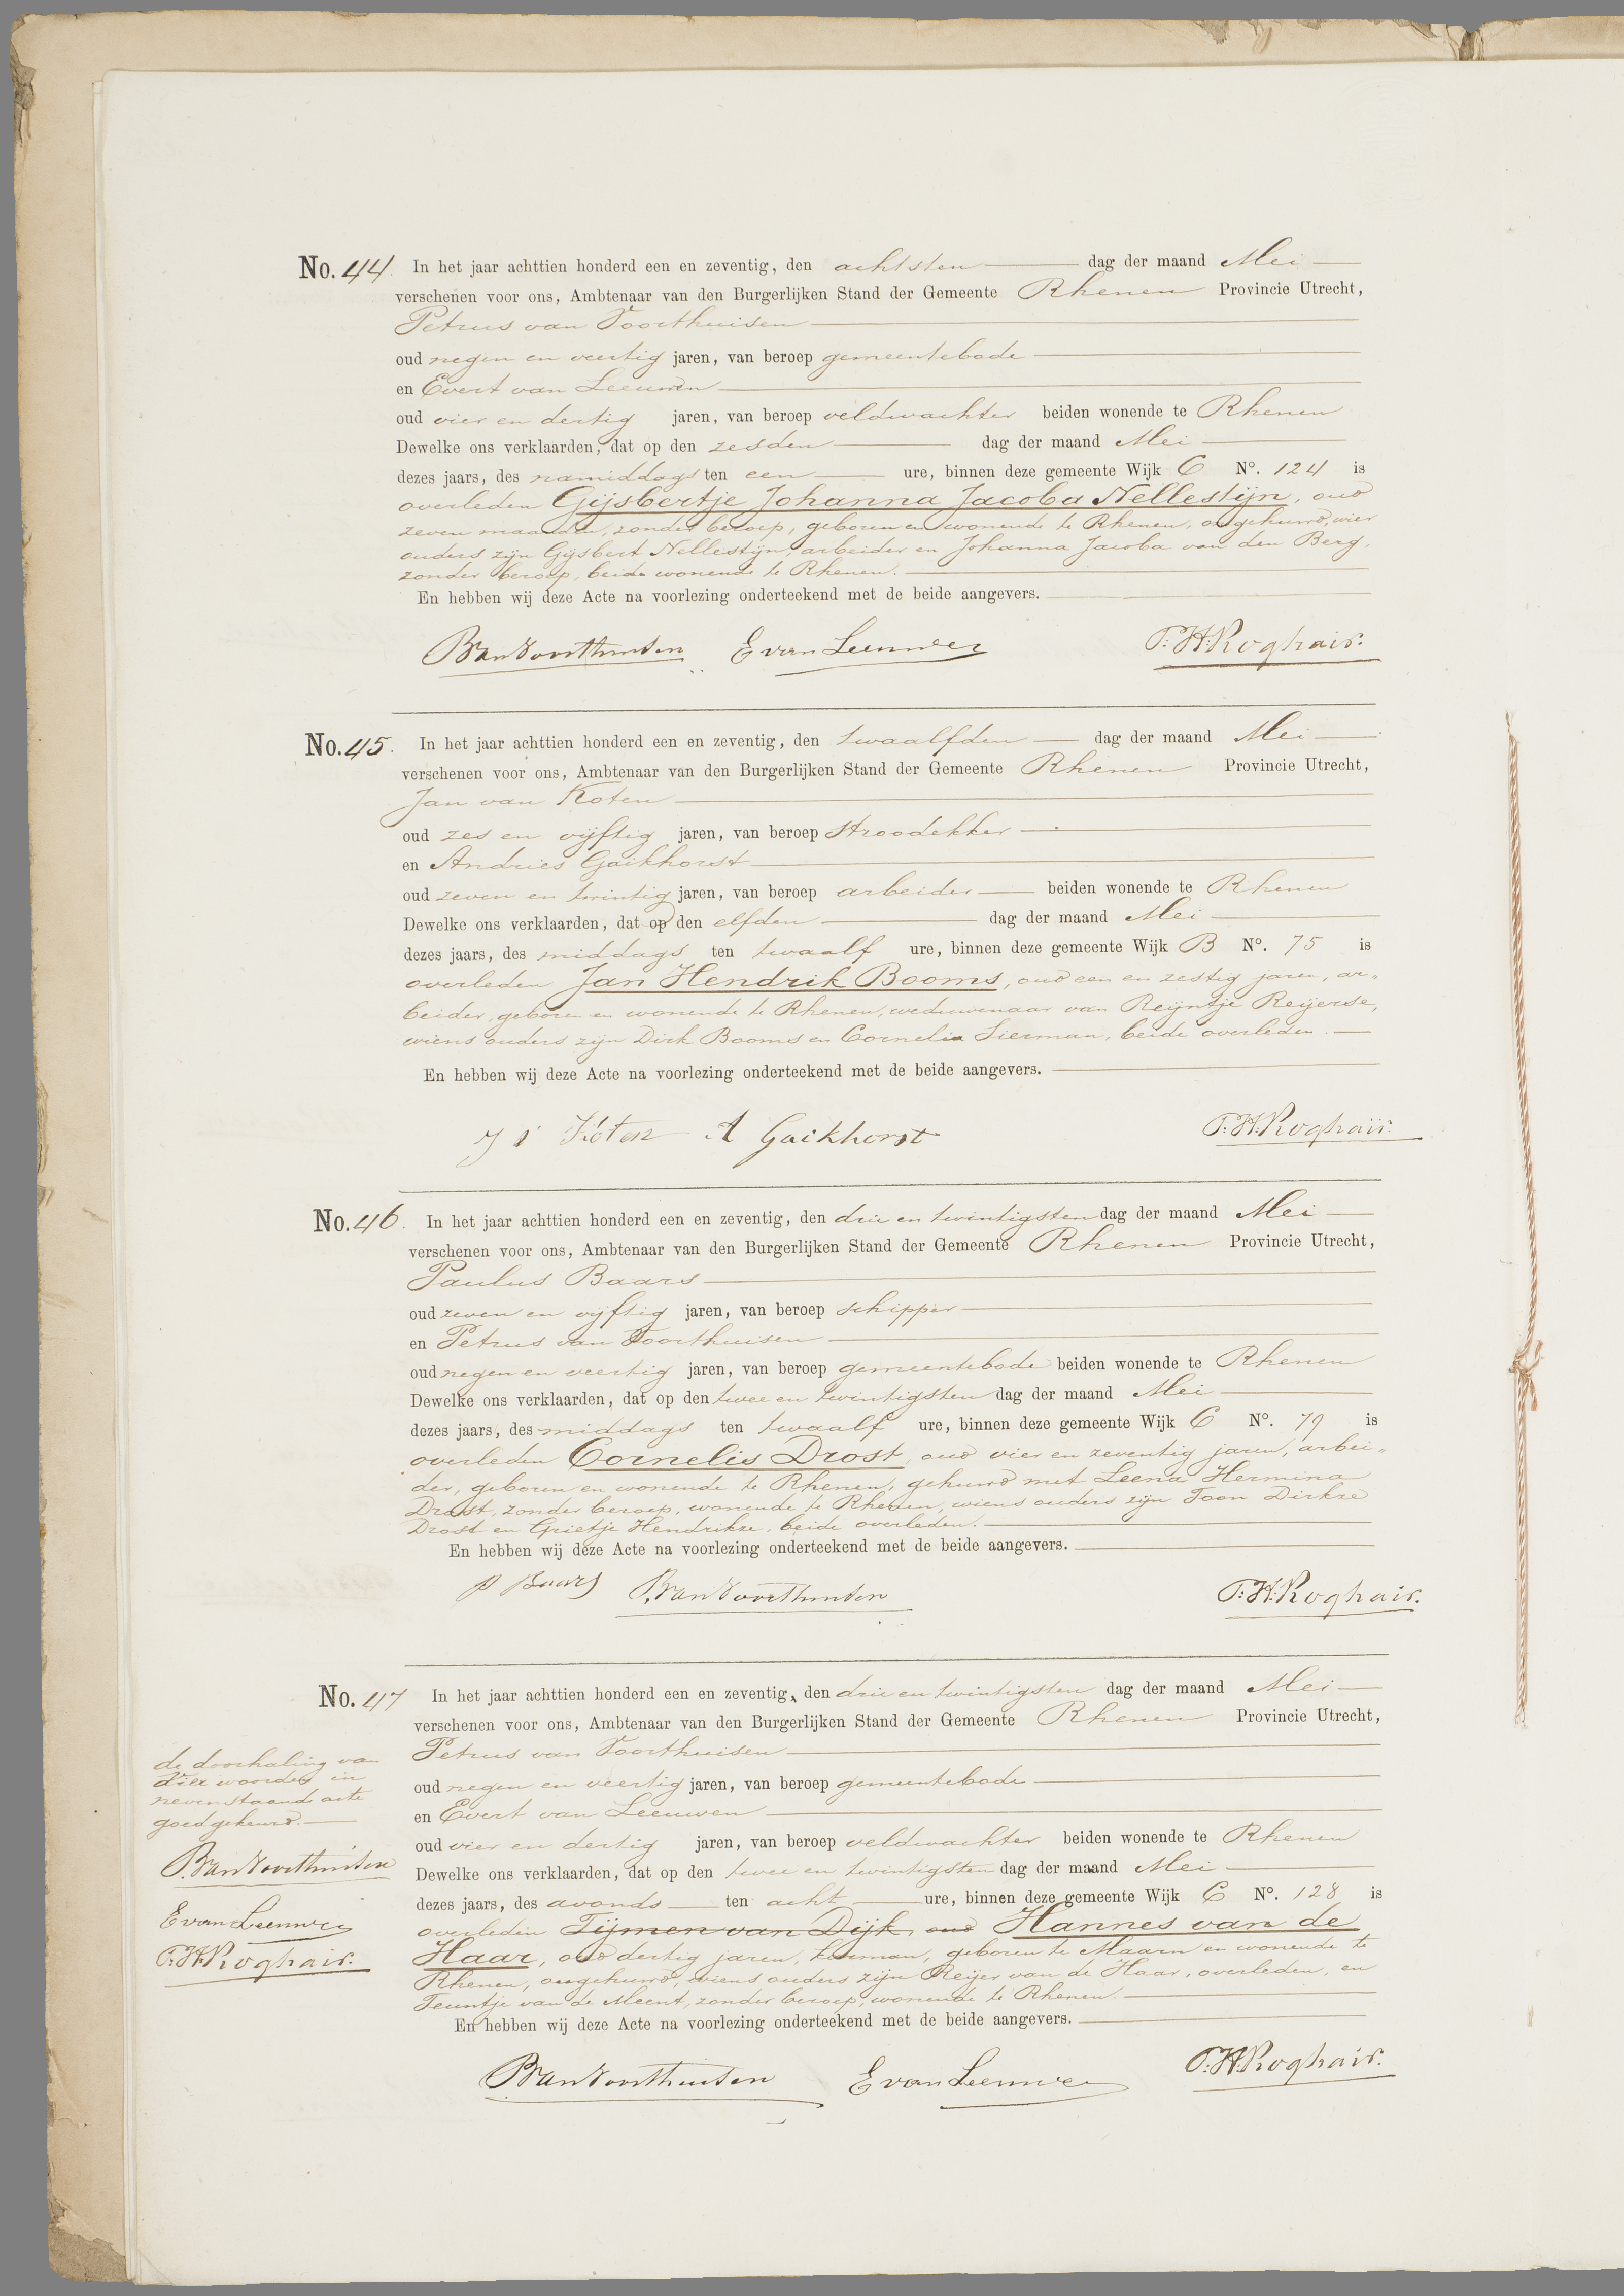 No. 44. In het jaar achttien honderd een en zeventig, den achtsten dag der maand Mei
verschenen voor ons, Ambtenaar van den Burgerlijken Stand der Gemeente Rhenen Provincie Utrecht,
Petrus van Voorthuisen
oud negen en veertig jaren, van beroep gemeentebode
en Evert van Leeuwen
oud vier en dertig jaren, van beroep veldwachter beiden wonende te Rhenen
Dewelke ons verklaarden, dat op den zesden dag der maand Mei
dezes jaars, des namiddags ten een ure, binnen deze gemeente Wijk C No. 124 is
overleden Gijsbertje Johanna Jacoba Nellestijn, oud
zeven maanden, zonder beroep, geboren en wonende te Rhenen, ongehuwd, wier
ouders zijn Gijsbert Nellestijn, arbeider en Johanna Jacoba van den Berg,
zonder beroep, beide wonende te Rhenen.
En hebben wij deze Acte na voorlezing onderteekend met de beide aangevers.
P. van Voorthuisen E van Leeuwen P. H. Roghair.
No. 45. In het jaar achttien honderd een en zeventig, den twaalfden dag der maand Mei
verschenen voor ons, Ambtenaar van den Burgerlijken Stand der Gemeente Rhenen Provincie Utrecht,
Jan van Koten
oud zes en vijftig jaren, van beroep stroodekker
en Andries Gaikhorst
oud zeven en twintig jaren, van beroep arbeider beiden wonende te Rhenen
Dewelke ons verklaarden, dat op den elfden dag der maand Mei
dezes jaars, des middags ten twaalf ure, binnen deze gemeente Wijk B No. 75 is
overleden Jan Hendrik Booms, oud een en zestig jaren, ar„
beider, geboren en wonende te Rhenen, weduwenaar van Reijntje Reijerse,
wiens ouders zijn Dirk Booms en Cornelia Sierman, beide overleden.
En hebben wij deze Acte na voorlezing onderteekend met de beide aangevers.
J v Koten A Gaikhorst P. H. Roghair.
No. 46. In het jaar achttien honderd een en zeventig, den drie en twintigsten dag der maand Mei
verschenen voor ons, Ambtenaar van den Burgerlijken Stand der Gemeente Rhenen Provincie Utrecht,
Paulus Baars
oud zeven en vijftig jaren, van beroep schipper
en Petrus van Voorthuisen
oud negen en veertig jaren, van beroep gemeentebode beiden wonende te Rhenen
Dewelke ons verklaarden, dat op den twee en twintigsten dag der maand Mei
dezes jaars, des middags ten twaalf ure, binnen deze gemeente Wijk C No. 79 is
overleden Cornelis Drost, oud vier en zeventig jaren, arbei„
der, geboren en wonende te Rhenen, gehuwd met Leena Hermina
Drost, zonder beroep, wonende te Rhenen, wiens ouders zijn Toon Dirkse
Drost en Grietje Hendrikse, beide overleden.
En hebben wij deze Acte na voorlezing onderteekend met de beide aangevers.
P Baars P. van Voorthuisen P. H. Roghair.
No. 47 In het jaar achttien honderd een en zeventig, den drie en twintigsten dag der maand Mei
verschenen voor ons, Ambtenaar van den Burgerlijken Stand der Gemeente Rhenen Provincie Utrecht,
Petrus van Voorthuisen
oud negen en veertig jaren, van beroep gemeentebode
en Evert van Leeuwen
oud vier en dertig jaren, van beroep veldwachter beiden wonende te Rhenen
Dewelke ons verklaarden, dat op den twee en twintigsten dag der maand Mei
dezes jaars, des avonds ten acht ure, binnen deze gemeente Wijk C No. 128 is
overleden Tijmen van Dijk, oud Hannes van de
Haar, oud dertig jaren, geboren te Maarn en wonende te
Rhenen, ongehuwd, wiens ouders zijn Reijer van de Haar, overleden, en
Teuntje van de Meent, zonder beroep, wonende te Rhenen.
En hebben wij deze Acte na voorlezing onderteekend met de beide aangevers.
P. van Voorthuisen E van Leeuwen P. H. Roghair.
de doorhaling van
vier woorden in
nevenstaande acte
goedgekeurd.
P. van Voorthuisen
E van Leeuwen
P. H. Roghair.